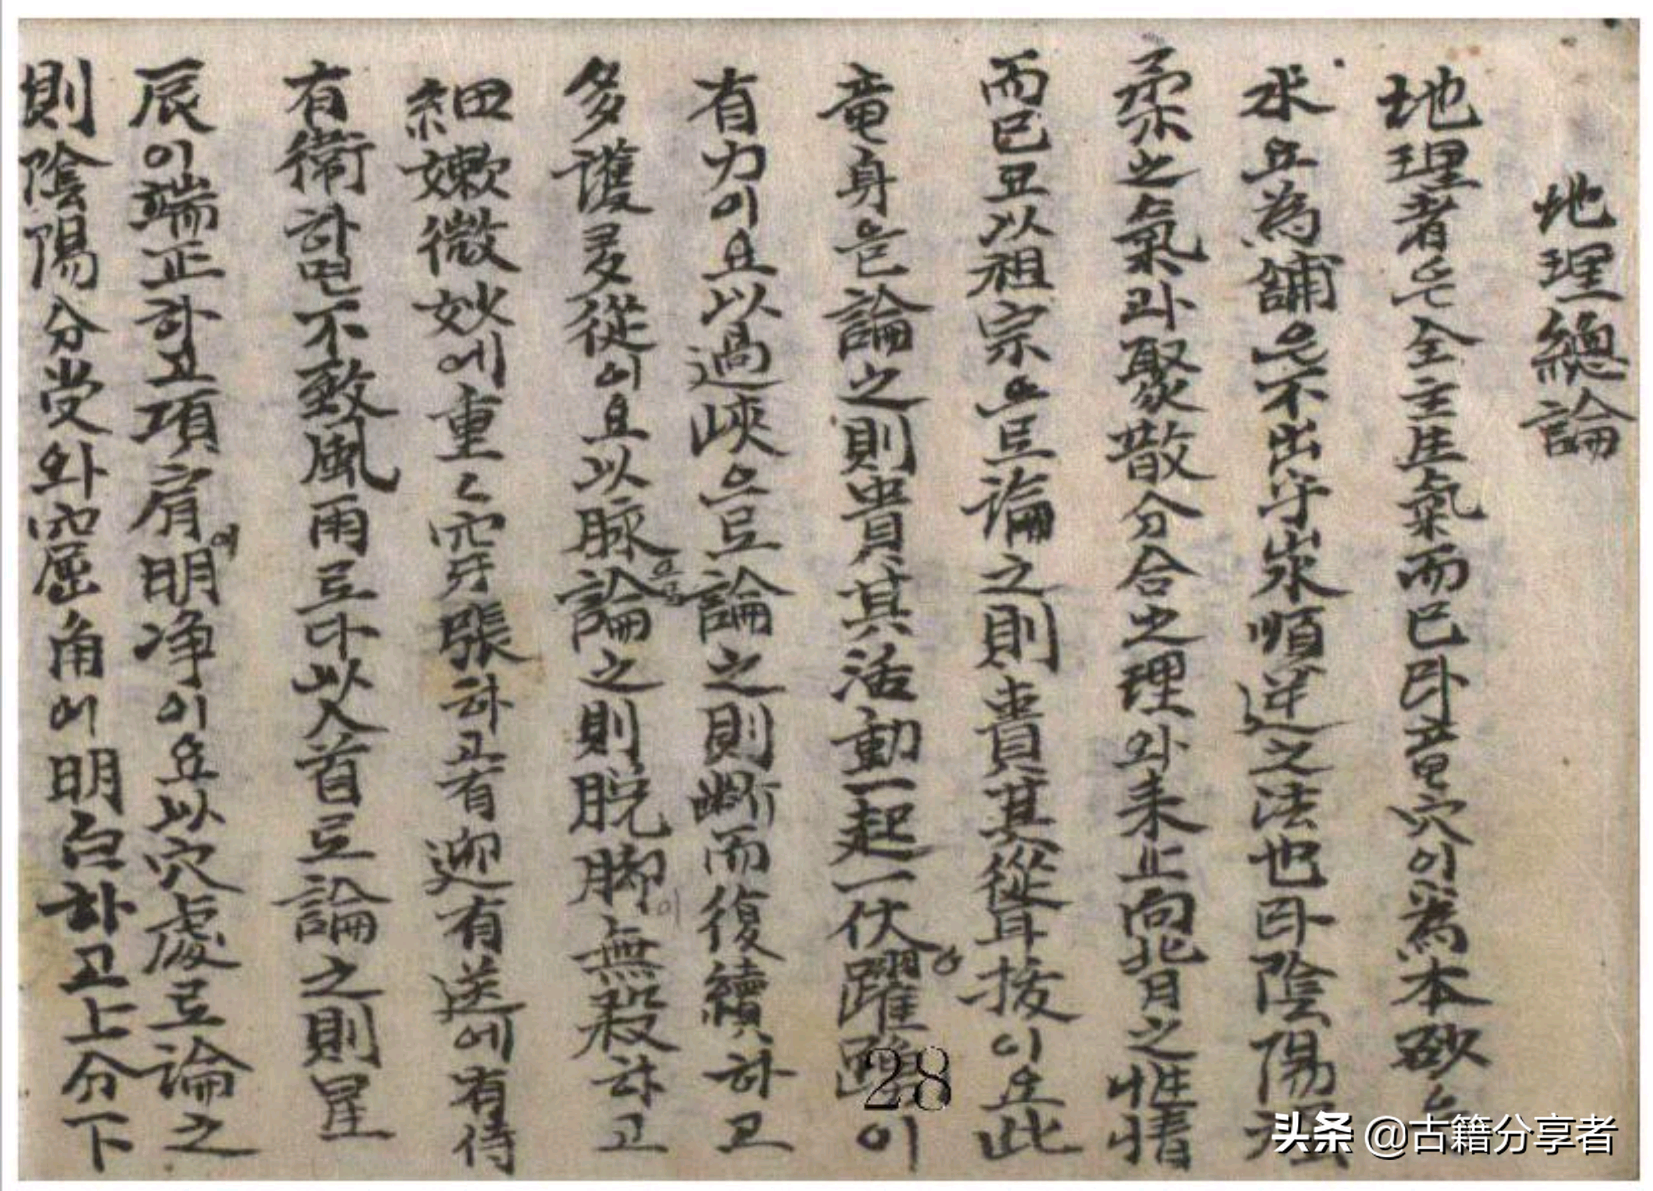 地理總論
地理者는全主生氣而已卧竜穴이爲本砂
水五為舖은不出乎氷順逆之法也卧陰陽
柔之氣와聚散分合之理와来止向背之性情
而已五以祖宗으로論之則貴其從耳拔이오此
竜身은論之則貴其活動一起一伏躍이
有力이요以過峽으로論之則斷而復續하고
多護多從이요以脉으로論之則脱脚이無殺하고
細嫰微妙에重々牙張하고有迎有送에有侍
有衛하면不致風雨로다以入首로論之則星
辰이端正하고項肩에明净이요以穴處로論之
則陰陽分受와窟角이明白하고上分下
28
头条 @古籍分享者